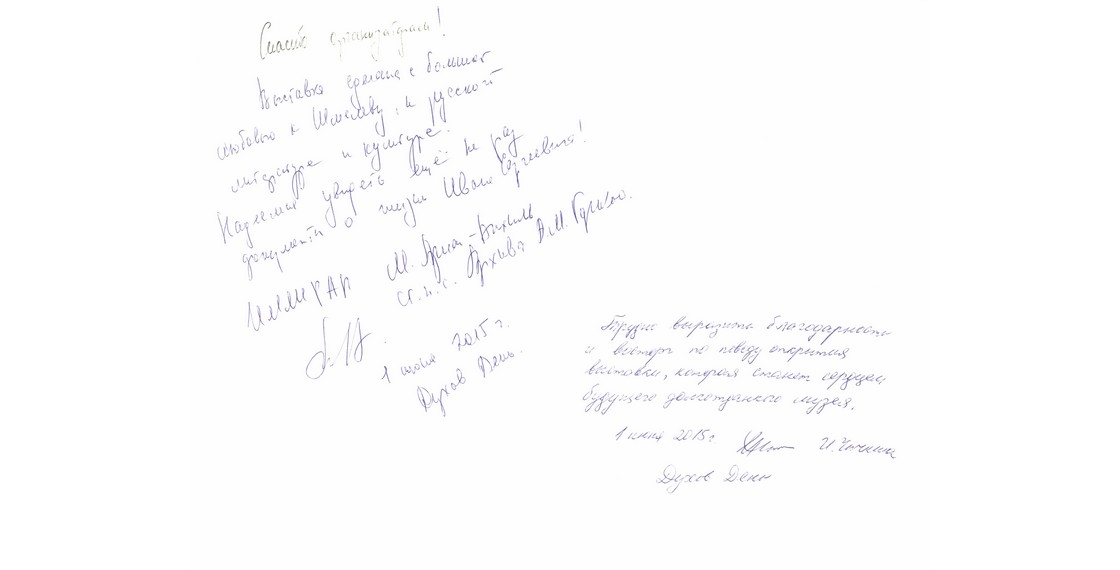 Спасибо организаторам!
Выставка сделана с большой
любовью к Шмелёву и к русской
литературе и культуре.
Надеемся увидеть ещё не раз
документы о жизни Ивана Сергеевича!
ИМЛИ РАН М.
ст.н.с. Архива А.М. Горького.
1 июня 2015 г.
Духов День.
Трудно выразить благодарность
и восторг по поводу открытия
выставки, которая станет сердцем
будущего долгожданного музея.
1 июня 2015 г И.
Духов День